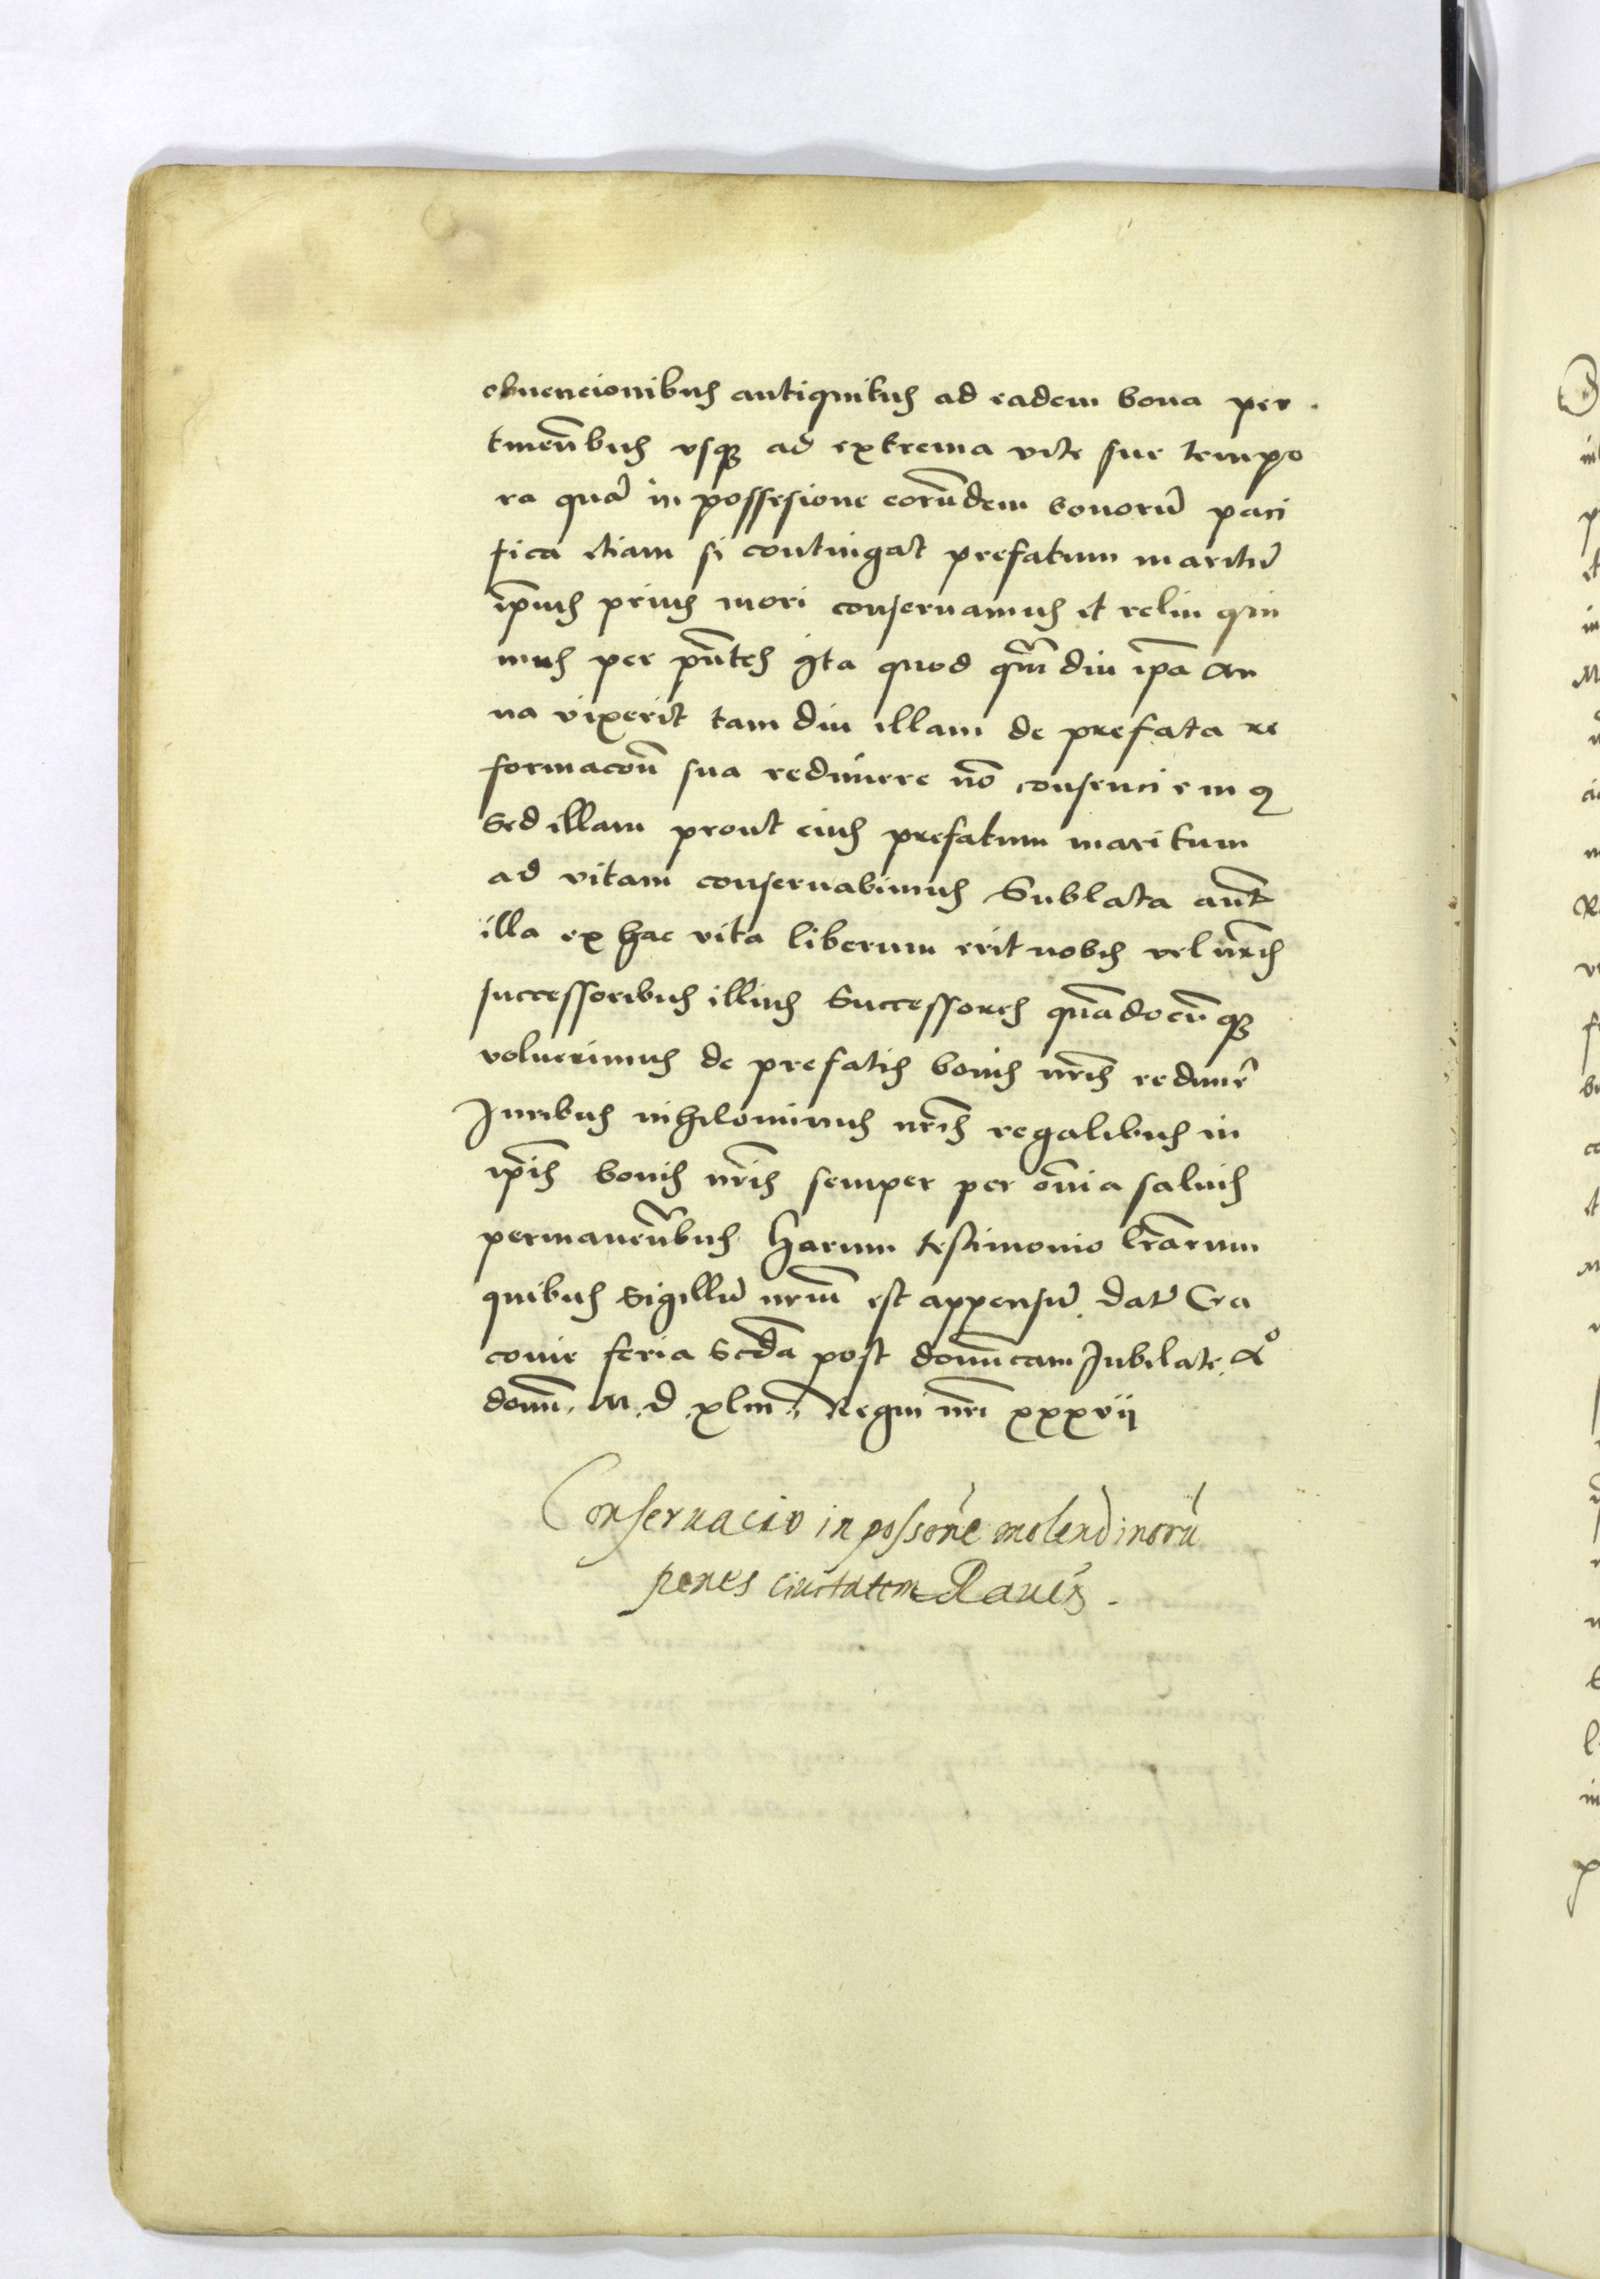 obuencionibus antiquitus ad eadem bona per
tinen̄bus vsqȝ ad extrema vite sue tempo
ra quā in possesione eorūdem bonorū paci
fica etiam si contingat prefatum maritū
ip̄ius prius mori conseruamus et relin qui
mus per pn̄tes ita quod qm̄ diu ip̄a An
na vixerit tam diu illam de prefata re
formacōn̄ sua redimere nō consenciemꝰ
Sed illam prout eius prefatum maritum
ad vitam conseruabimus Sublata aūt
illa ex hac vita liberum erit nobis vel nr̄is
successoribus illius Successores quādocūqȝ
voluerimus de prefatis bonis nr̄is redimer̄
Juribus nihilominus nr̄is regalibus in
ip̄is bonis nr̄is semper per om̄ia saluis
permanen̄bus Harum testimonio lr̄arum
quibus Sigillū nrm̄ est appensū. Dat̄ Cra
couie feria Scd̄a post domīcam Jubilate A°
domī. M. d. xliii. Regni nr̄i xxxvii
Conseruacio in possōne molendinorū
penes ciuitatem Raueñ.